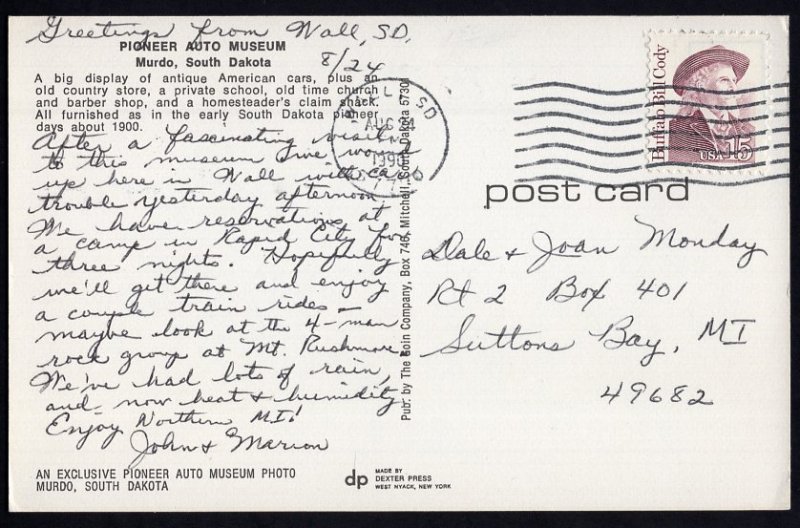 Greetings from Wall, SD.
8/24
PIONEER AUTO MUSEUM
Murdo, South Dakota
A big display of antique American cars, plus an
old country store, a private school, old time church
and barber shop, and a homesteader's claim shack.
All furnished as in the early South Dakota pioneer
days about 1900.
After a fascinating visit
to this museum we wound
up here in Wall with car
trouble yesterday afternoon.
We have reservations at
a camp in Rapid City for
three nights. Hopefully
we'll get there and enjoy
a couple train rides -
maybe look at the 4-man
rock group at Mt. Rushmore.
We've had lots of rain,
and now heat & humidity.
Enjoy Northern MI!
John & Marion
AN EXCLUSIVE PIONEER AUTO MUSEUM PHOTO
MURDO, SOUTH DAKOTA
Pub. by The Goin Company, Box 746, Mitchell, South Dakota 57301
dp
MADE BY
DEXTER PRESS
WEST NYACK, NEW YORK
SD
AUG
1990
Buffalo Bill Cody
USA 15
post card
Dale & Joan Monday
Rt 2 Box 401
Suttons Bay, MI
49682